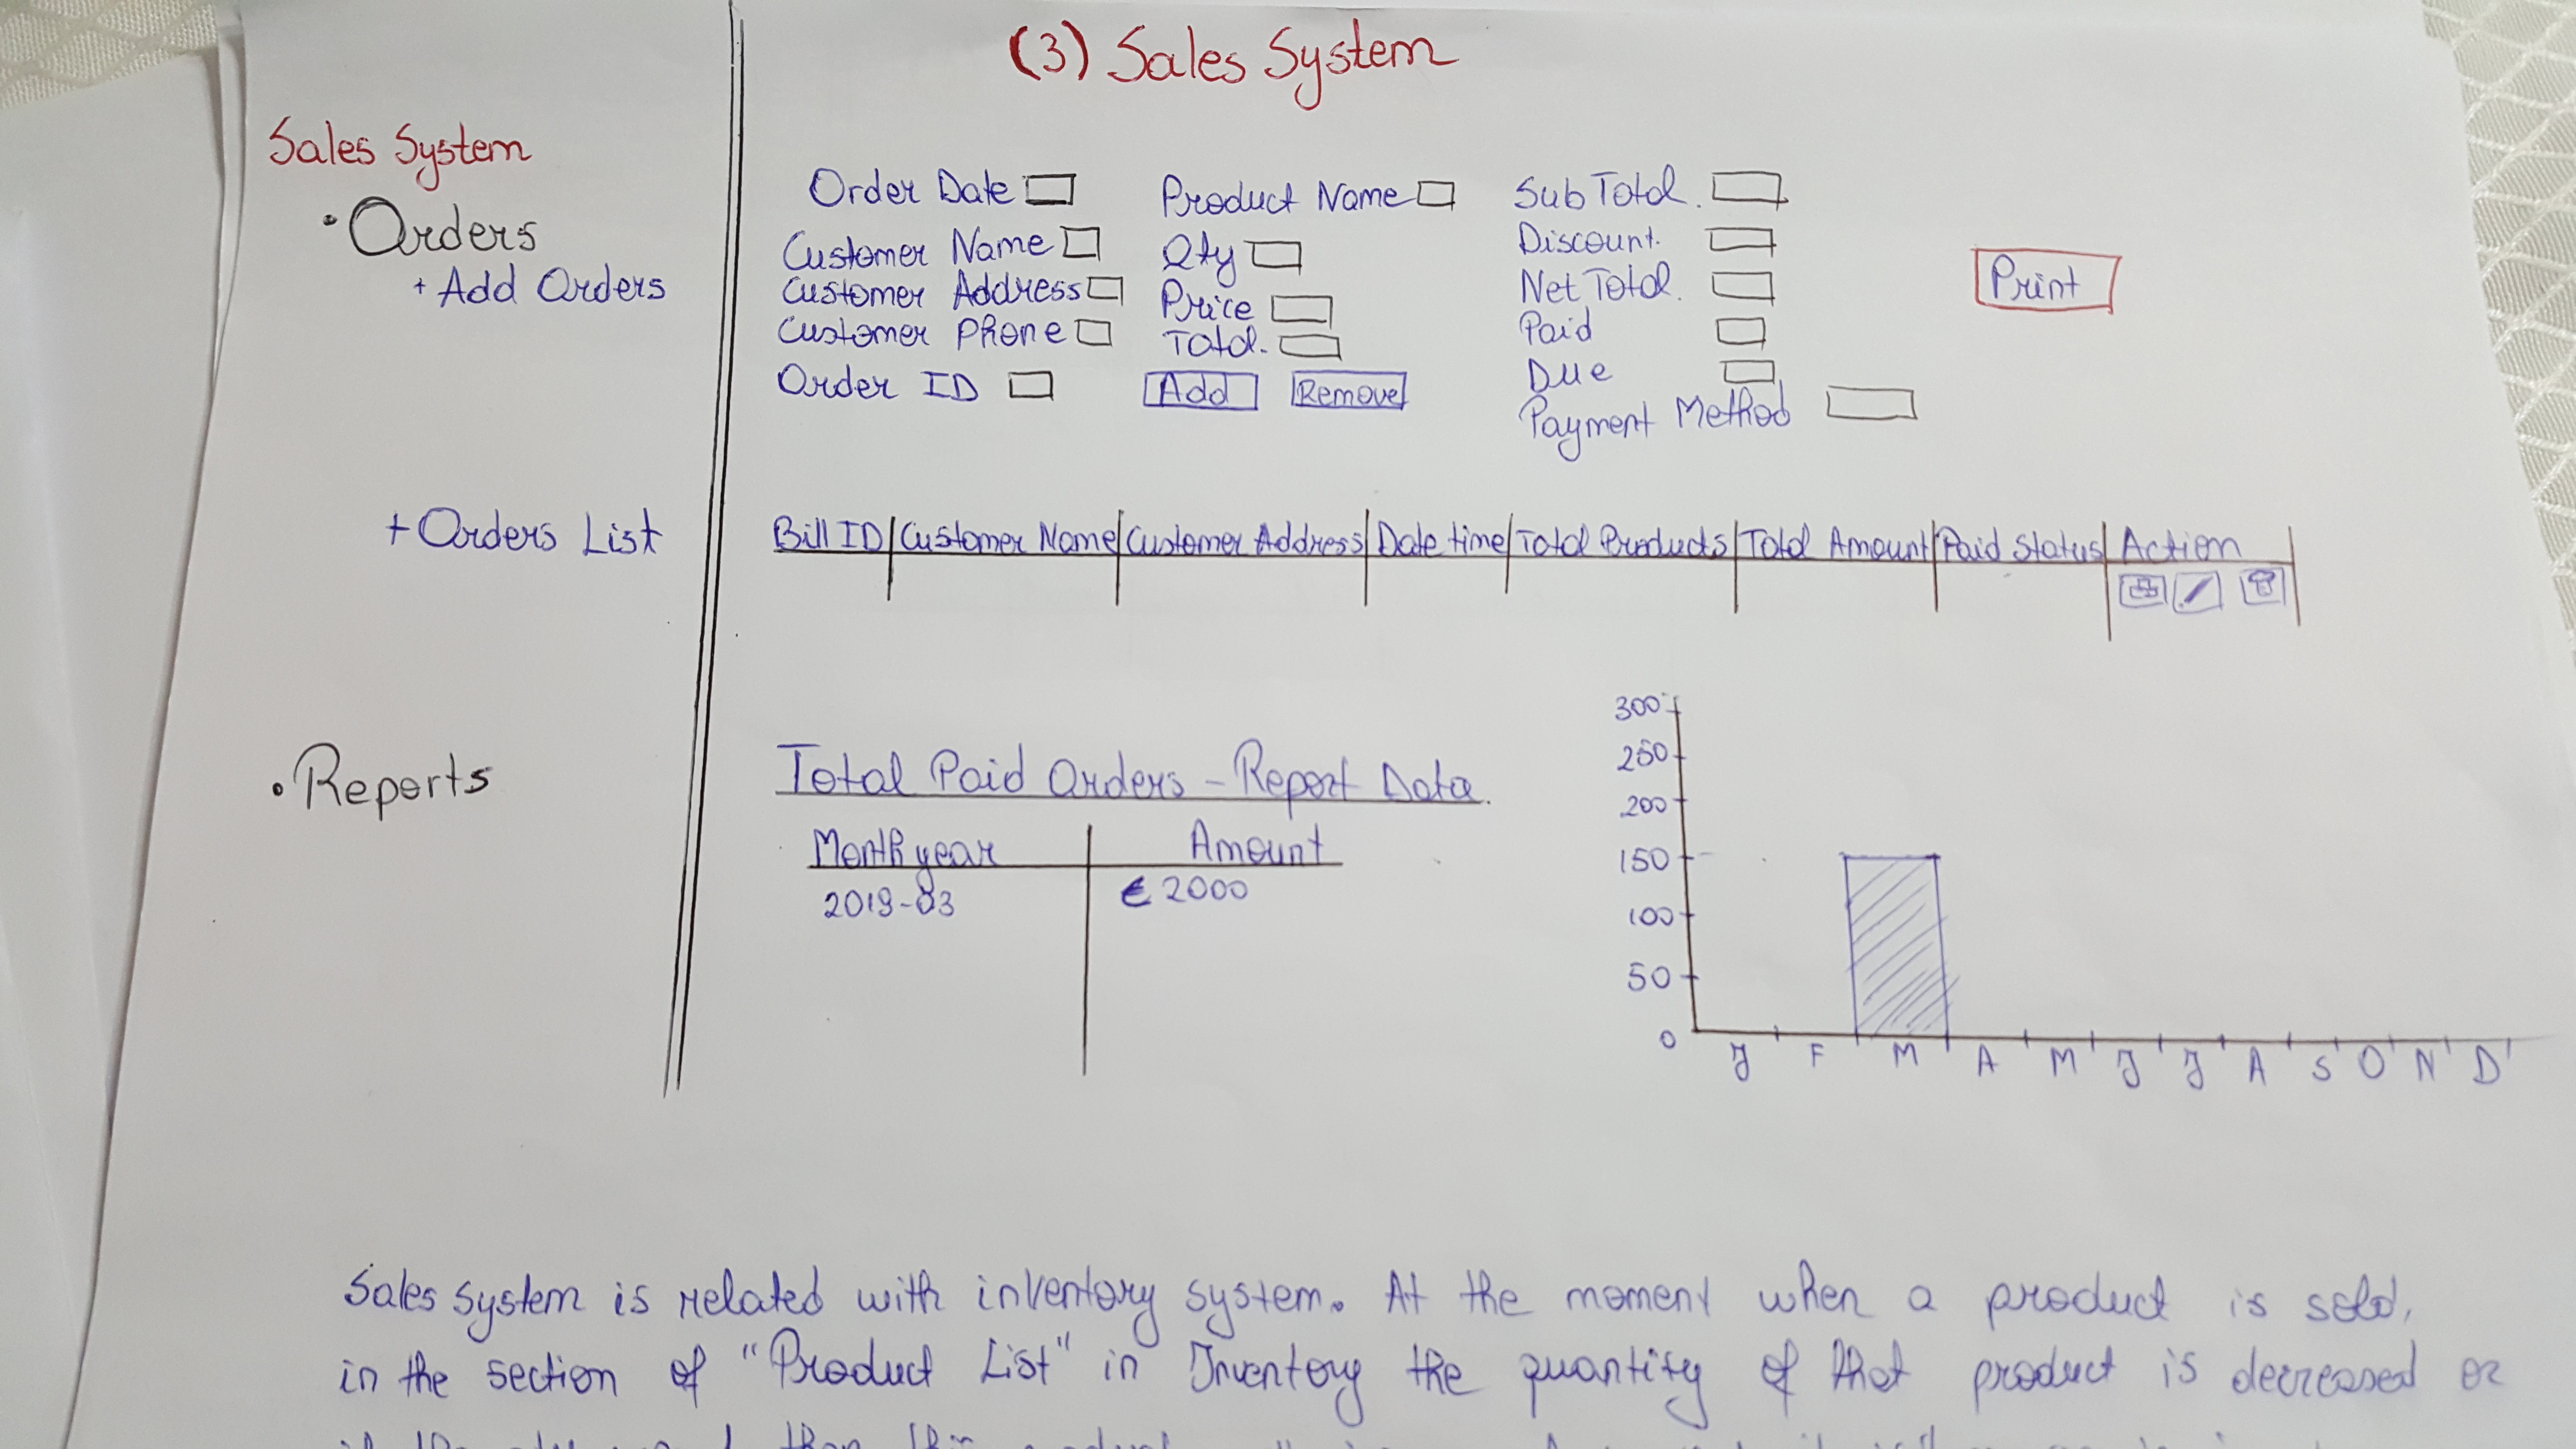 (3) Sales System
Sales System
• Orders
+ Add Orders
Order Date
Customer Name
Customer Address
Customer Phone
Order ID
Product Name
Qty
Price
Total.
Add Remove
Sub Total.
Discount.
Net Total.
Paid
Due
Payment Method
Print
+ Orders List
Bill ID Customer Name Customer Address Date time Total Products Total Amount Paid Status Action
• Reports
Total Paid Orders - Report Data.
Month year Amount
2019-03 € 2000
300
250
200
150
100
50
0
J F M A M J J A S O N D
Sales System is related with inventory system. At the moment when a product is sold,
in the section of "Product List" in Inventory the quantity of that product is decreased or